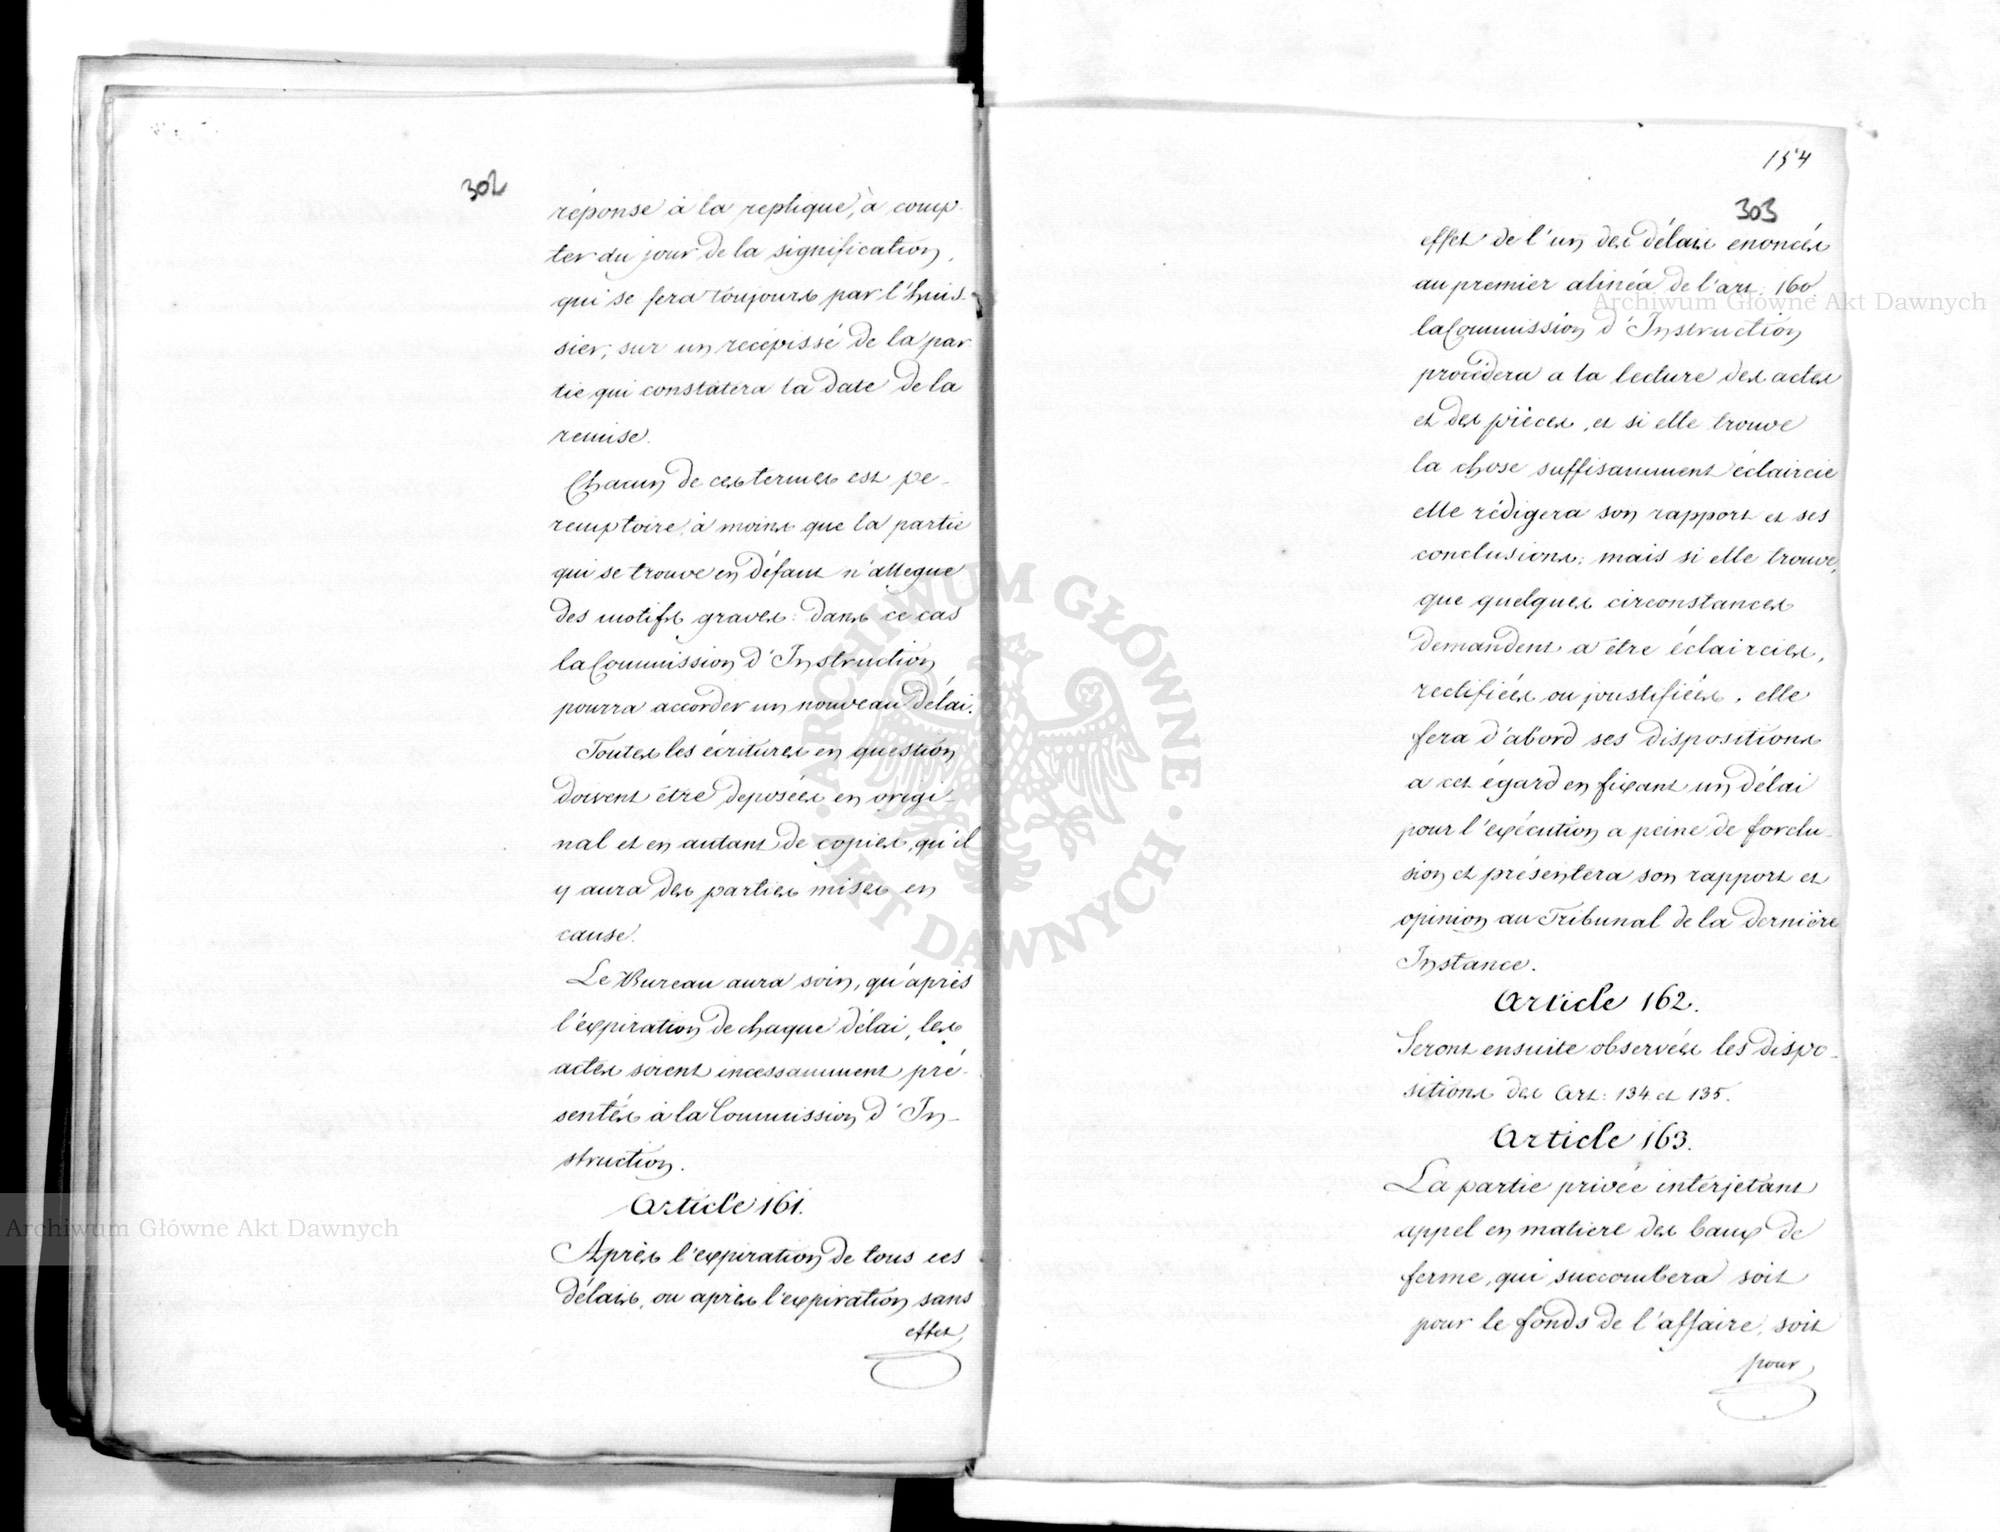 302
réponse à la replique, à comp-
ter du jour de la signification,
qui se fera toujours par l'huis-
sier, sur un recépissé de la par
tie qui constatera la date de la
remise.
Chacun de ces termes est pe-
remptoire, à moins que la partie
qui se trouve en défaut n'allegue
des motifs graves: dans ce cas
la Commission d'Instruction
pourra accorder un nouveau délai.
Toutes les écritures en question
doivent être deposées en origi-
nal et en autant de copies, qu'il
y aura des parties mises en
cause.
Le Bureau aura soin, qu'après
l'expiration de chaque délai, les
actes soient incessamment pré-
sentés à la Commission d'In-
struction.
Article 161.
Après l'expiration de tous ces
délais, ou après l'expiration sans
effet
154
303
effet de l'un des délais enoncés
au premier alinéa de l'art: 160
la Commission d'Instruction
procèdera a la lecture des actes
et des pièces, et si elle trouve
la chose suffisamment éclaircie
elle rédigera son rapport et ses
conclusions; mais si elle trouve,
que quelques circonstances
demandent a être éclaircies,
rectifiées ou justifiées, elle
fera d'abord ses dispositions
a cet égard en fixant un délai
pour l'exécution a peine de forclu-
sion et présentera son rapport et
opinion au Tribunal de la dernière
Instance.
Article 162.
Seront ensuite observées les dispo-
sitions des Art: 134 et 135.
Article 163.
La partie privée intérjetant
appel en matiere des baux de
ferme, qui succombera soit
pour le fonds de l'affaire, soit
pour
Archiwum Główne Akt Dawnych
Archiwum Główne Akt Dawnych
ARCHIWUM GŁÓWNE · AKT DAWNYCH ·